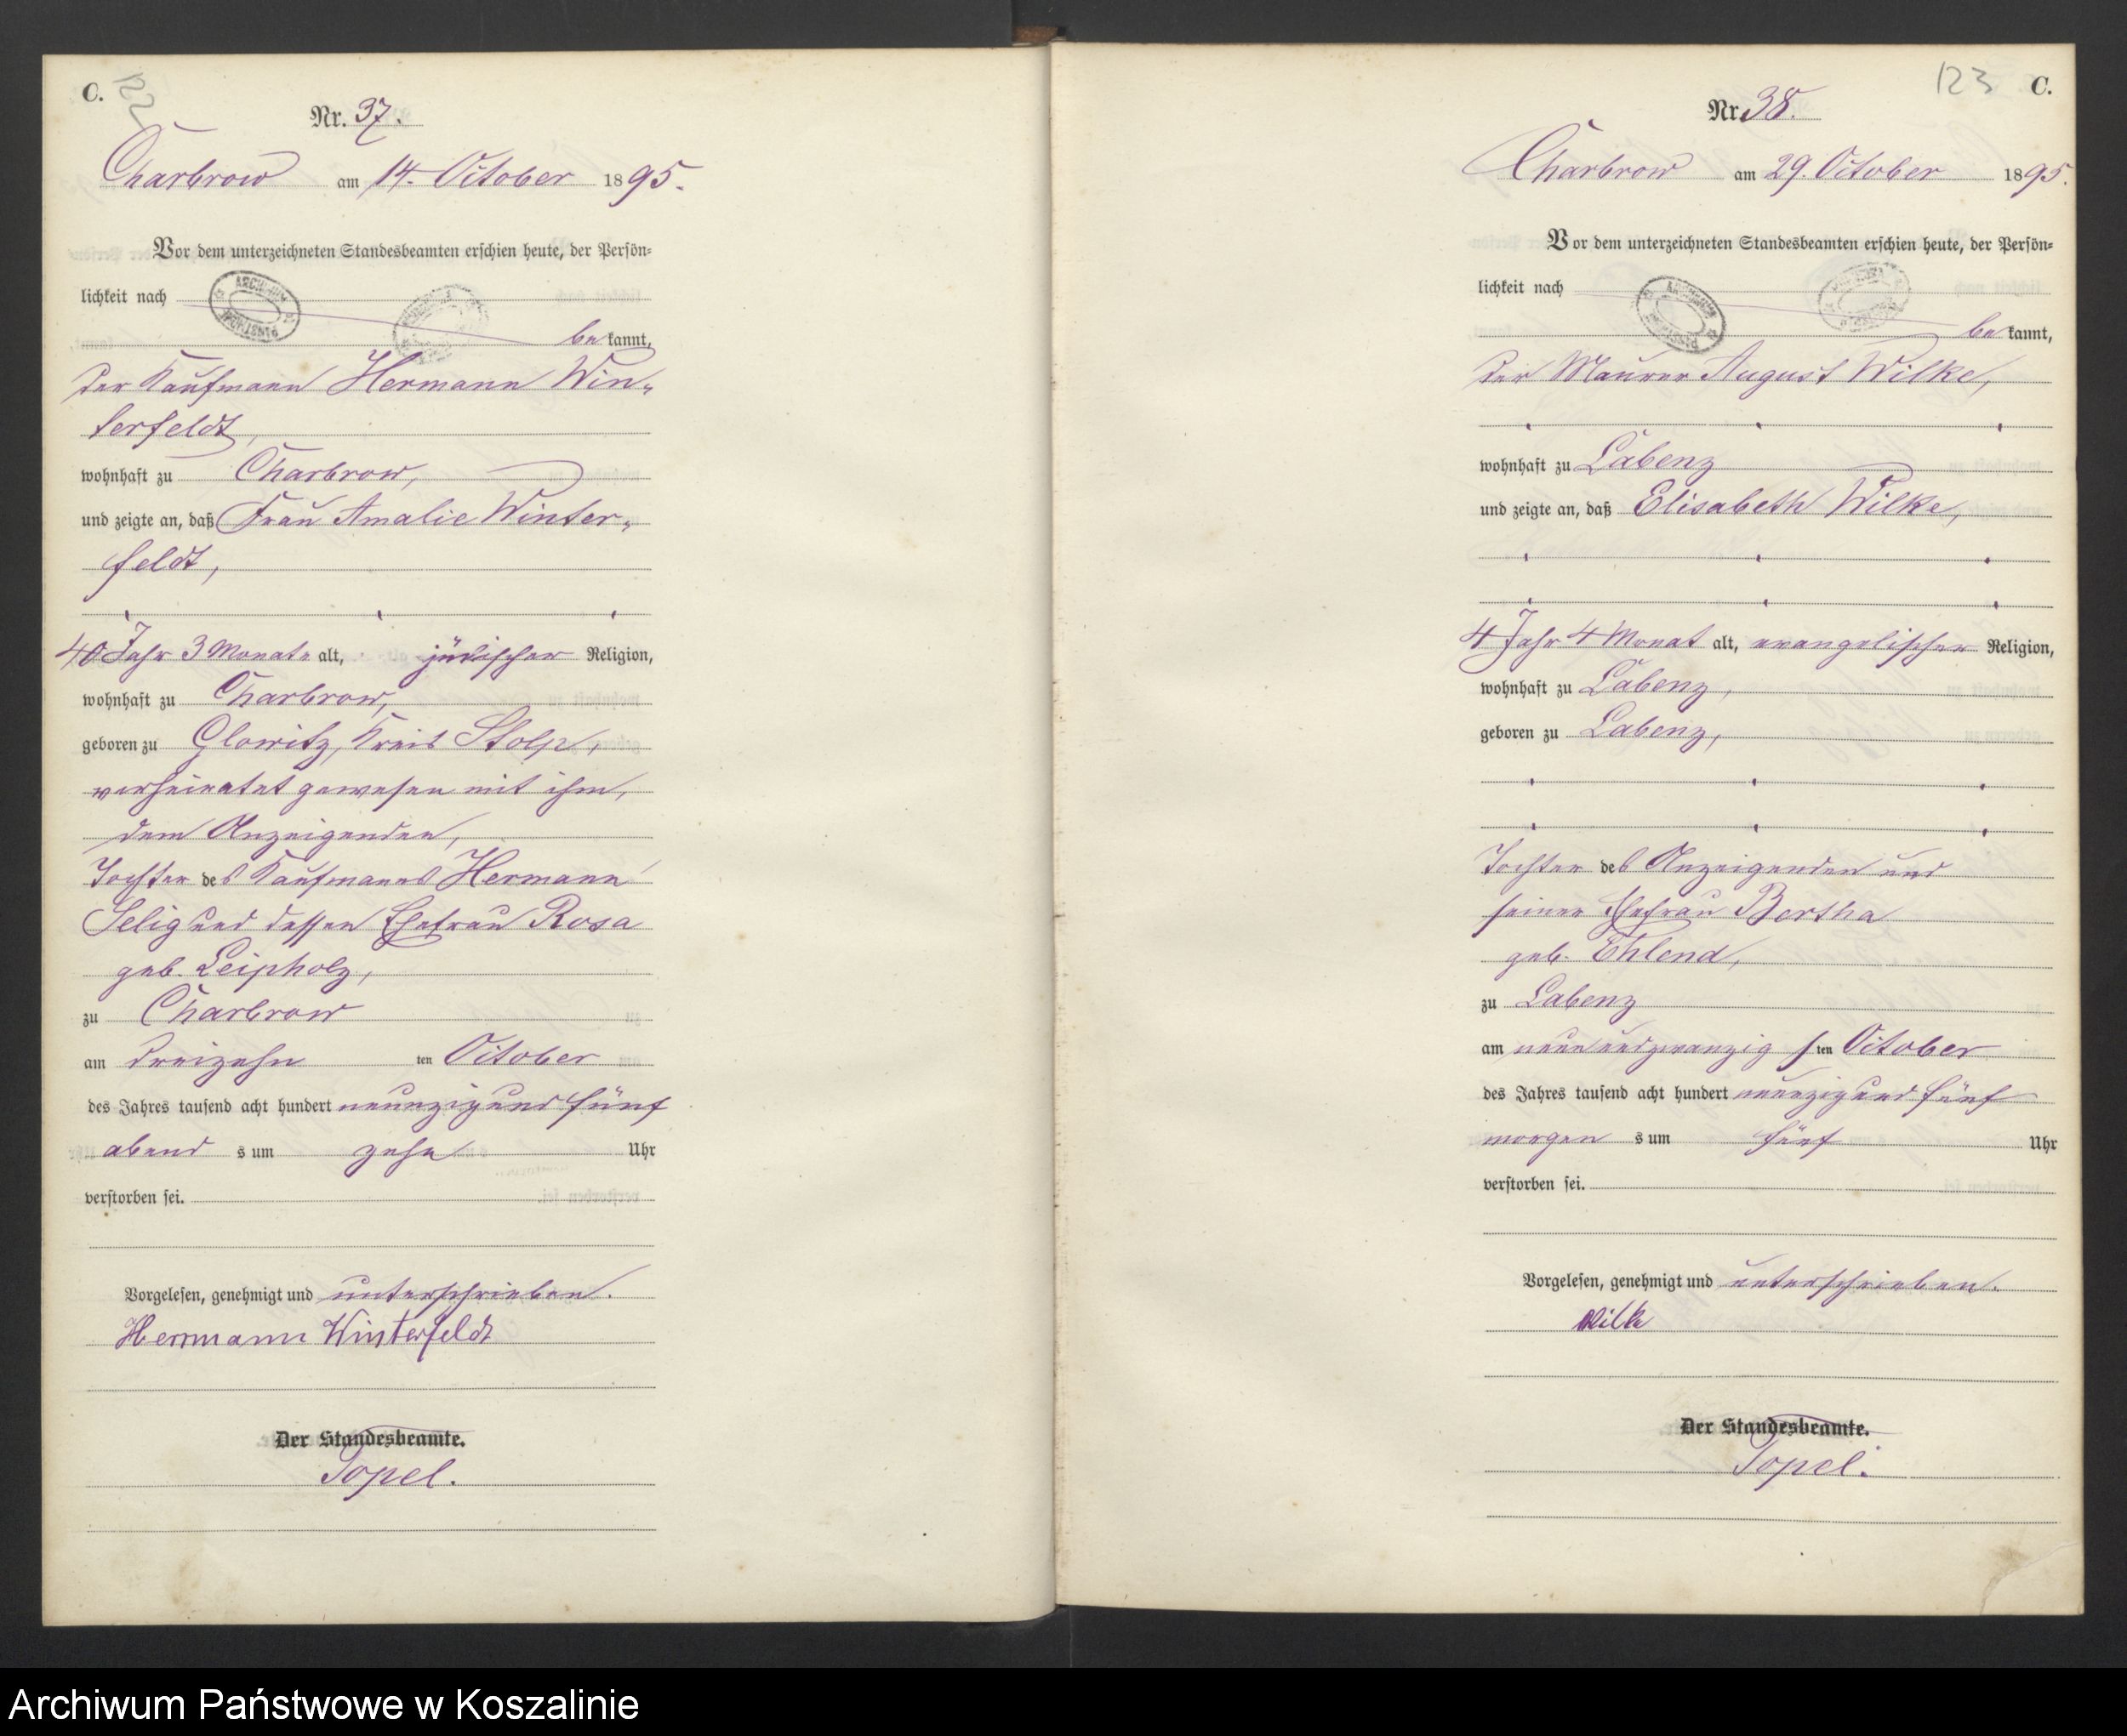 C.
122
Nr. 37.
Charbrow am 14. October 1895.
Vor dem unterzeichneten Standesbeamten erschien heute, der Persön-
lichkeit nach
bekannt,
der Kaufmann Hermann Win-
terfeldt,
wohnhaft zu Charbrow,
und zeigte an, daß Frau Amalie Winter-
feldt,
40 Jahr 3 Monate alt, jüdischer Religion,
wohnhaft zu Charbrow,
geboren zu Glowitz, Kreis Stolp,
verheiratet gewesen mit ihm,
dem Anzeigenden,
Tochter des Kaufmanns Hermann
Selig und dessen Ehefrau Rosa
geb. Leipholz,
zu Charbrow
am dreizehn ten October
des Jahres tausend acht hundert neunzig und fünf
abend s um zehn Uhr
verstorben sei.
Vorgelesen, genehmigt und unterschrieben.
Herrmann Winterfeldt
Der Standesbeamte.
Topel.
123 C.
Nr. 38.
Charbrow am 29. October 1895.
Vor dem unterzeichneten Standesbeamten erschien heute, der Persön-
lichkeit nach
bekannt,
der Maurer August Wilke,
wohnhaft zu Labenz
und zeigte an, daß Elisabeth Wilke,
4 Jahr 4 Monat alt, evangelischer Religion,
wohnhaft zu Labenz,
geboren zu Labenz,
Tochter des Anzeigenden und
seiner Ehefrau Bertha
geb. Ehlend,
zu Labenz
am neunundzwanzig sten October
des Jahres tausend acht hundert neunzig und fünf
morgen s um fünf Uhr
verstorben sei.
Vorgelesen, genehmigt und unterschrieben.
Wilke
Der Standesbeamte.
Topel.
Archiwum Państwowe w Koszalinie